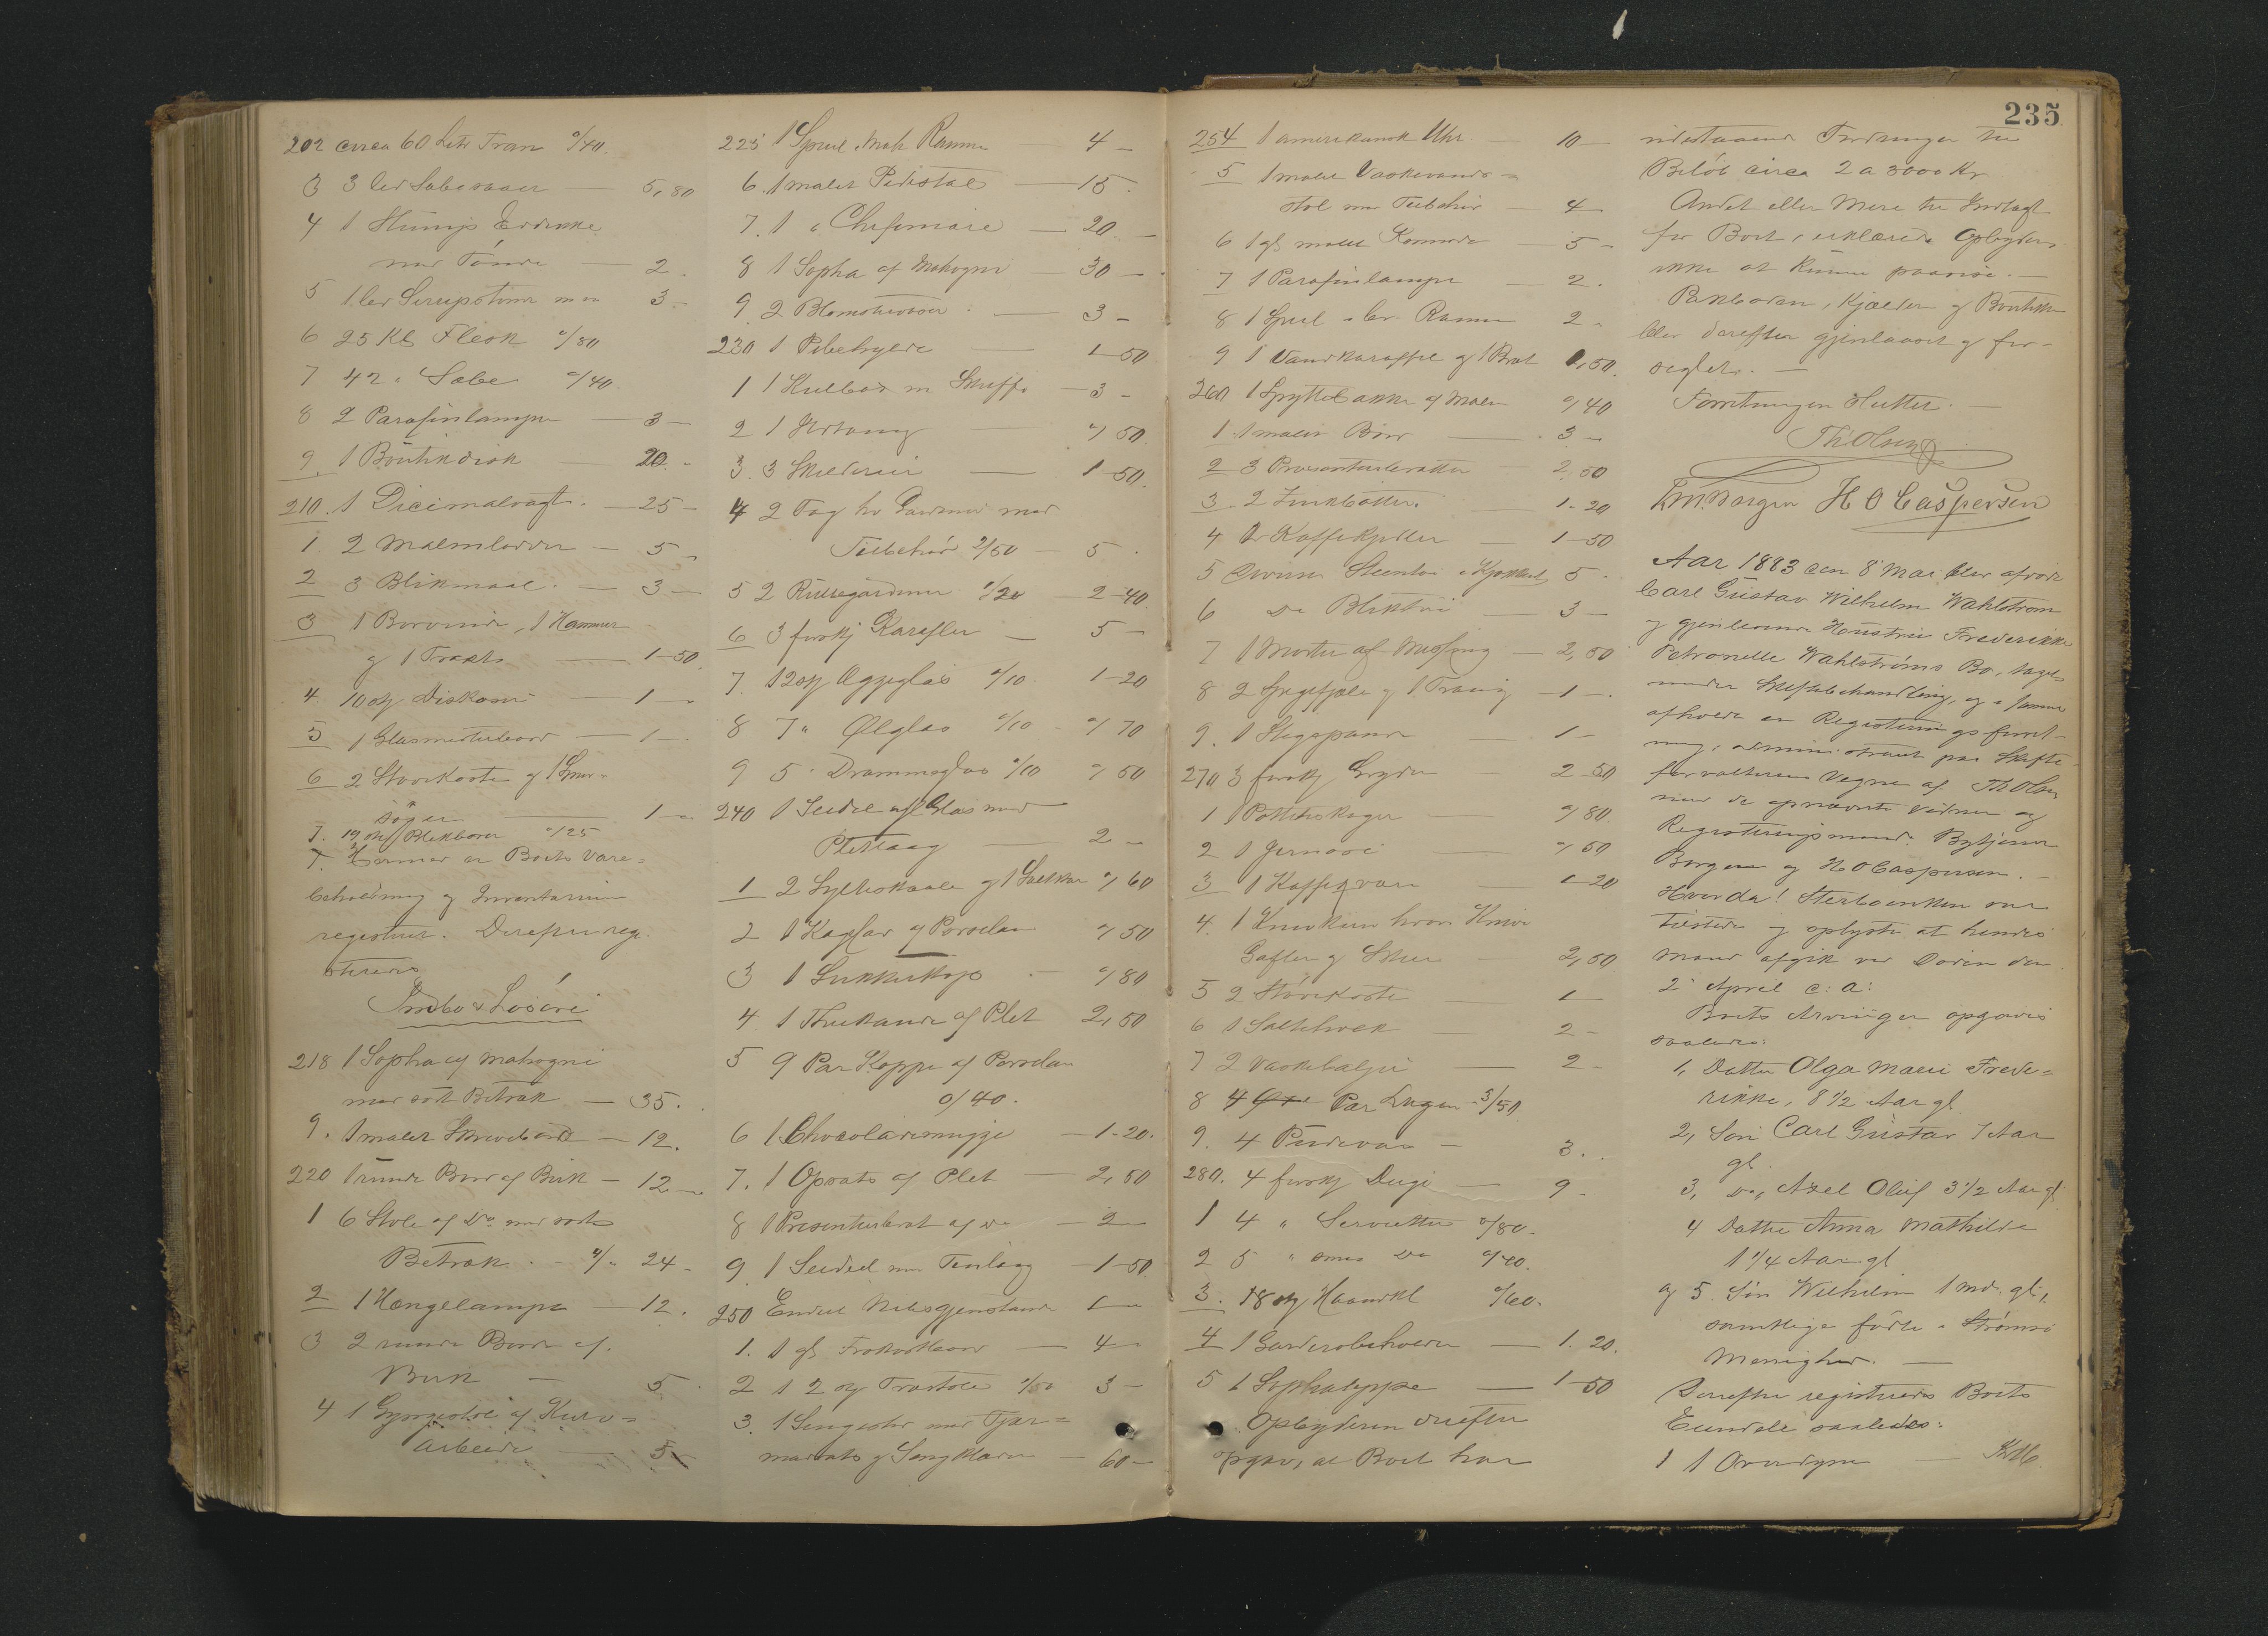 202 circa 60 Litr Tran a/40.
3 3 les Sæbevarer 5,80
4 1 Slump Eddikke
med Tønde 2.
5 1 les Siruptønder m m 3-
6 25 Kl Flesk a/80
7 42 " Sæbe a/40
8 2 Parafinlamper 3-
9. 1 Boutikdisk 20.-
210. 1 Dicimalvægt. 25-
1 2 Malmlodder 5-
2 3 Blikmaal. 3-
3 1 Borvinde, 1 Hammer
og 1 Tragt 1-50.
4 10 stk Diskaar 1-
5 1 Glasmesterbord 1-.
6 2 Stovekoste og 1
1-
7. 19 stk Blikboxer a/25
Hermed er Boets Vare-
beholdning og Inventarium
registreret. Derefter reg-
stiredes
Indbo & Løsøre
218 1 Sopha af Mahogni
med sort Betræk 35.
9. 1 malet Skrivebord 12.
220 1 rundt Bord af Birk 12-
1 6 Stole af Do med sorte
Betræk a/4 24-
2 1 Hængelampe 12.
3 2 runde Borde af
Birk 5.
4 1 Gyngestol af Kurv-
arbeide 5-
225 1 Speil i Mah Ramme 4-
6. 1 malet Pidestal 15.
7. 1 " Chefoniaire 20.-
8 1 Sopha af Mahogni 30-
9. 2 Blomstervaser. 3-
230 1 Pibehylde 1-50
1 1 Kulbox m Skuffe 3-
2 1 a/50.
3. 3 Skilderier 1-50.
4 2 Fag hv Gardiner med
Tilbehør 2/50 5.
5 2 Rullegardiner 1/20 2-40.
6 3 forskj Karafler 5-
7. 12 stk Æggeglas a/10 1-20
8 7 " Ølglas a/10 a/70
9 5 " Dramsglas a/10 a/50
240 1 Seidel af Glas med
Pletlaag 2-
1 2 Sylteskaale og 1 Saltkar a/60
2 1 Kagefad af Porcelan a/50
3 1 Sukkerkop a/80
4. 1 Thekande af Plet 2,50
5 9 Par Koppe af Porcelan
a/40.
6 1 Chocolademugge 1-20.
7. 1 Opsats af Plet 2,50
8 1 Presenterbret af do 2-
9. 1 Seidel med Tinlaag 1-50.
250 Endel Nibsgjenstande 1-
1. 1 gl Frokostbord 4-
2 1 2 stk Træstole 1/50 3-
3. 1 Sengested med Fjær-
madrats og Sengklæder 60-
254 1 amerikansk Uhr 10-
5 1 malet Vaskevands-
stol med Tilbehør 4-
6 1 gl malet Komode 5-
7 1 Parafinlampe 2.
8 1 Speil i br. Ramme 2-
9 1 Vandkaraffel og 1 Bret 1,50.
260 1 Spyttebakke af Malm a/40
1. 1 malet Bord 3-
2 3 Præsenterbretter 2,50
3. 2 Zinkbøtter. 1-20
4 2 Kaffekjedler 1-50
5 Diverse Stentøi i Kjøkkenet 5.
6 Do Bliktøi 3-
7 1 Morter af Messing 2,50
8 2 Spegefjæle og 1 Traug 1-.
9. 1 Stegepande 1-
270 3 forskj Gryder 2-50
1 1 a/80.
2 1 a/50
3 1 Kaffekværn 1-20
4. 1 Knivkurv hvori Knive
Gafler og Skeer 2,50
5 2 Støvekoste 1-
6 1 2-
7 2 Vaskebalger 2-
8 4 Par Lagen 3/50
9. 4 Pudevar 3..
280. 4 forskj Duge 9-
1 4 " Servietter a/80.
2 5 " smaa do a/40.
3. 18 stk Haandkl a/60.
4 1 Garderobehylde 1.20.
5 1 Sophateppe 1-50
Opbyderen derefter
opgav, at Boet har
235
udestaaende Fordringer til
Beløb circa 2 a 3000 Kr
Andet eller Mere til Indtægt
for Boet, erklærede Opbyderen
ikke at kunne paavise.-
Pakboden, Kjælder og Boutikken
blev derefter gjenlaaset og for-
seglet.-
Forretningen sluttet.-
Th Olsen
H O Caspersen
Aar 1883 den 8 Mai blev afdøde
Carl Gustav Wilhelm Wahlstrøm
og gjenlevende Hustru Frederikke
Petronelle Wahlstrøms Bo, taget
under Skiftebehandling, og i samme
afholdt en Registreringsforret-
ning, administreret paa Skifte-
forvalterens Vegne af Th Olsen
med de opnævnte Vidner og
Registreringsmænd: Bytjener
Borgen og H O Caspersen.-
Hvorda! Sterboenken var
tilstede og oplyste at hendes
Mand afgik ved Døden den
2 April c: a:
Boets Arvinger opgaves
saaledes:
1, Datter Olga Marie Frede-
rikke, 8 1/2 Aar gl
2, Søn Carl Gustav 7 Aar
gl
3, Do, Axel Oluf 3 1/2 Aar gl
4 Datter Anna Mathilde
1 1/4 Aar gl
og 5. Søn Wilhelm 1 Md. gl.,
samtlige fødte i Strømsø
Menighed.-
Derefter registreredes Boets
Eiendele saaledes:
1 1 Overdyne